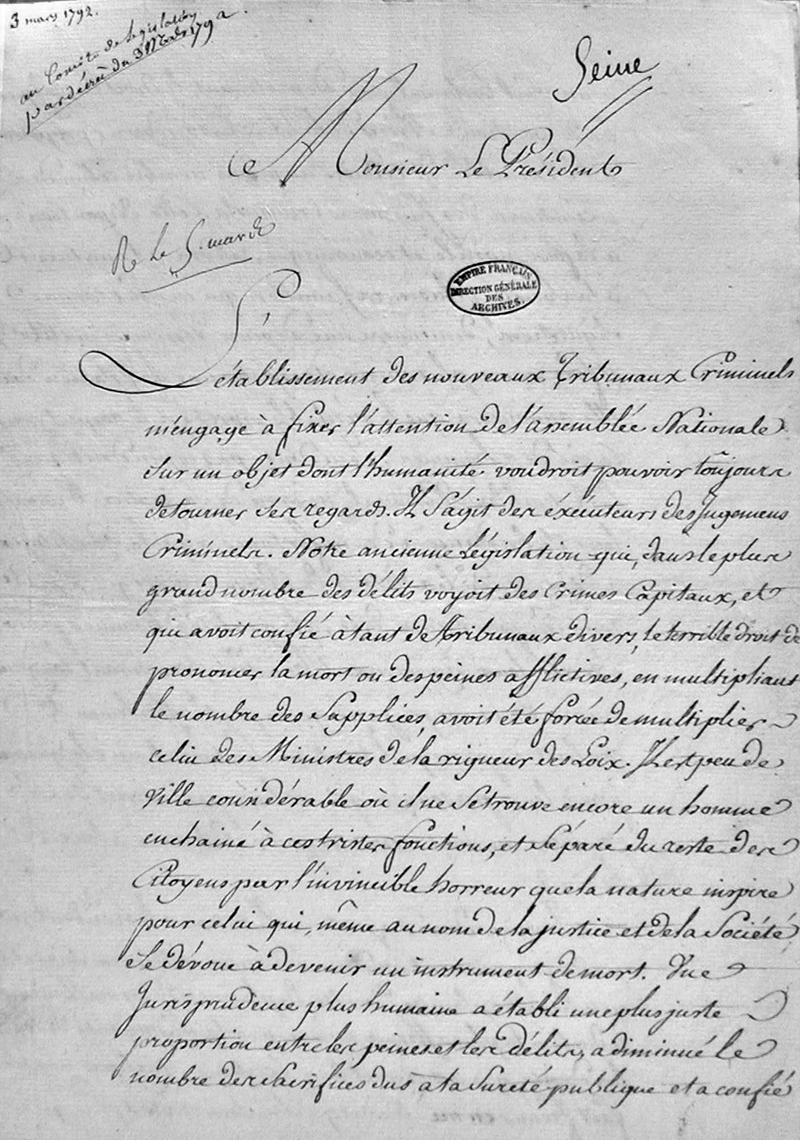 3 mars 1792.
au Comité de Législation
par décrèt du 3 Mars 1792
Seine
Monsieur Le Président
R le 5. mars
EMPIRE FRANÇAIS
DIRECTION GÉNÉRALE
DES
ARCHIVES.
L'établissement des nouveaux Tribunaux Criminels
m'engage à fixer l'attention de l'assemblée Nationale
sur un objet dont l'humanité voudroit pouvoir toujours
detourner ses regards. Il s'agit des éxécuteurs des Jugemens
Criminels. Notre ancienne Législation qui, dans le plus
grand nombre des délits voyoit des Crimes Capitaux, et
qui avoit confié à tant de Tribunaux divers, le terrible droit de
prononcer la mort ou des peines afflictives, en multipliant
le nombre des Supplices, avoit été forcée de multiplier
celui des Ministres de la rigueur des Loix. Il est peu de
ville considérable où il ne se trouve encore un homme
enchainé à ces tristes fonctions, et séparé du reste des
Citoyens par l'invincible horreur que la nature inspire
pour celui qui, même au nom de la justice et de la Société,
se dévoue à devenir un instrument de mort. Une
Jurisprudence plus humaine a établi une plus juste
proportion entre les peines et les délits, a diminué le
nombre des sacrifices dus a la sureté publique et a confié